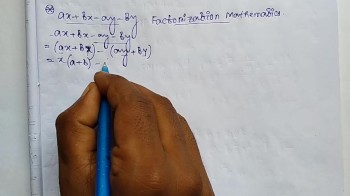 ax+bx-ay-by Factorization Mathematics
ax+bx-ay-by
=(ax+bx)-(ay+by)
=x(a+b)-